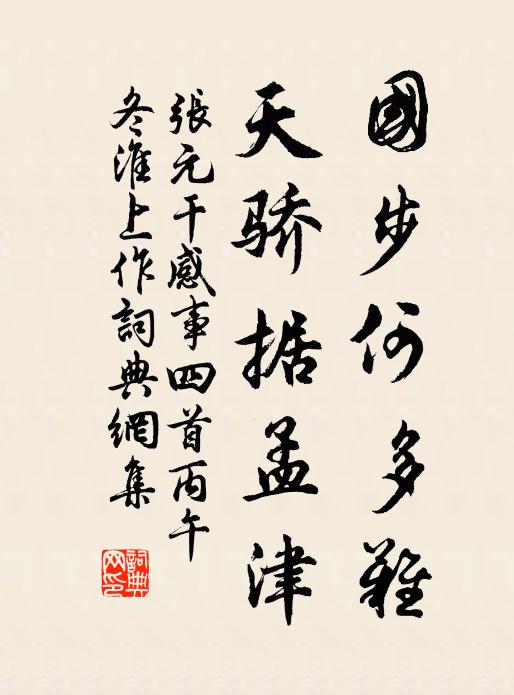 國步何多難
天骄据孟津
張元干感事四首丙午
冬淮上作詞典網集
詞典
网印